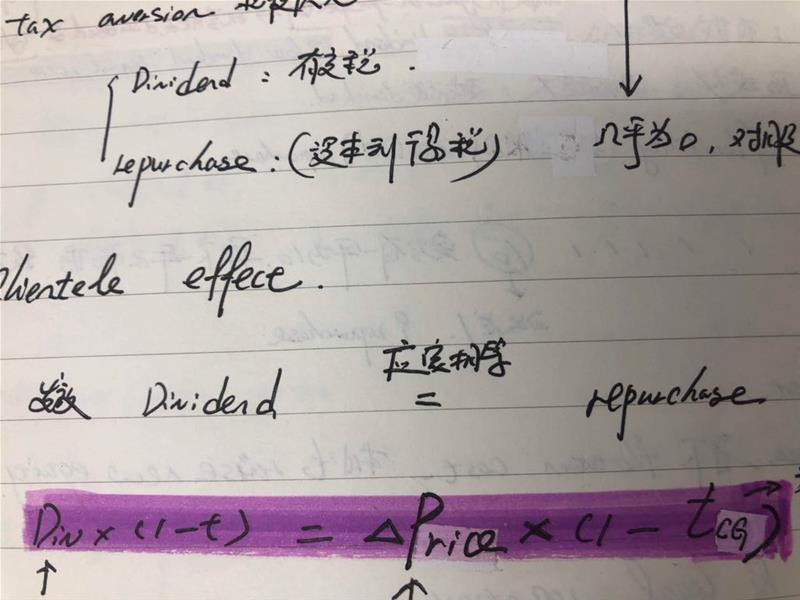 tax aversion
Dividend : 有交税.
repurchase : (资本利得税) 几乎为0, 对
clientele effect.
发放 Dividend 应该相等 = repurchase
Div × (1-t) = △Price × (1- tCG)